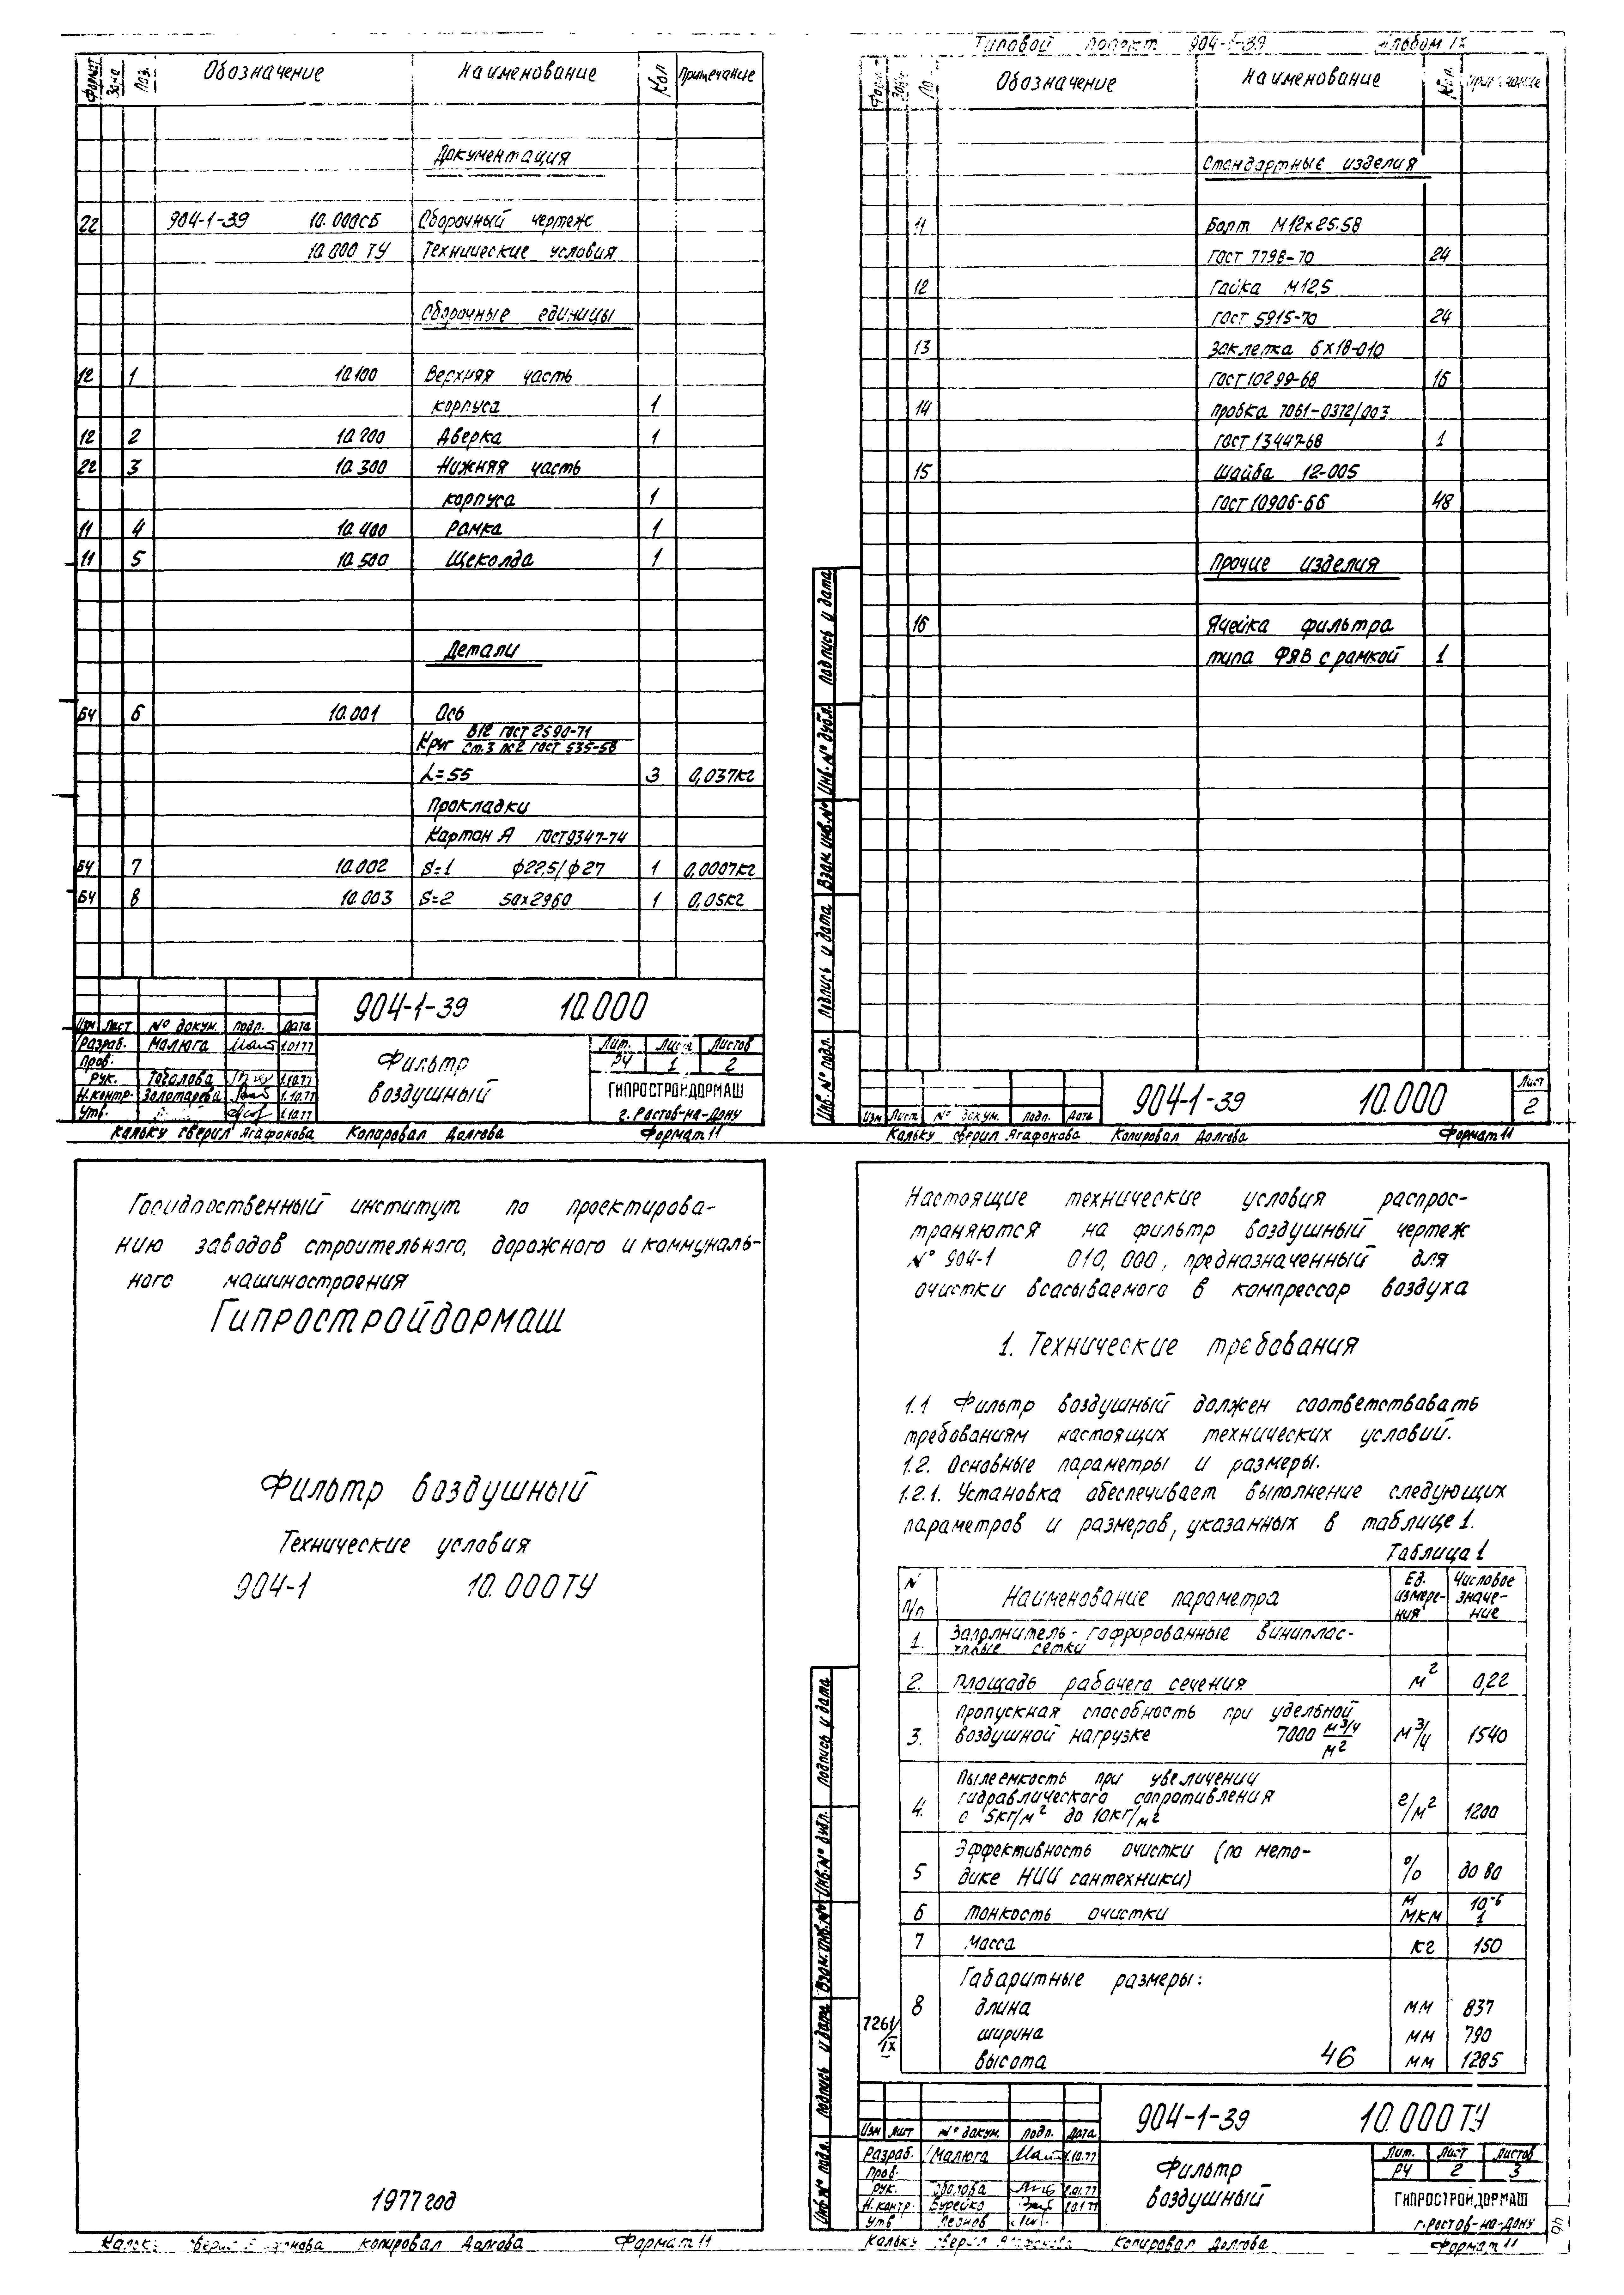 Типовой проект 904-1-39 Альбом IX
Формат Зона Поз. Обозначение Наименование Кол Примечание
Документация
22 904-1-39 10.000СБ Сборочный чертеж
10.000 ТУ Технические условия
Сборочные единицы
12 1 10.100 Верхняя часть
корпуса 1
12 2 10.200 Дверка 1
22 3 10.300 Нижняя часть
корпуса 1
11 4 10.400 Рамка 1
11 5 10.500 Щеколда 1
Детали
БЧ 6 10.001 Ось
Круг В12 ГОСТ 2590-71
Ст.3 пс2 ГОСТ 535-58
L=55 3 0,037кг
Прокладки
Картон А ГОСТ9347-74
БЧ 7 10.002 S=1 ф22,5/ф27 1 0,0007кг
БЧ 8 10.003 S=2 50х2960 1 0,05кг
904-1-39 10.000
Изм Лист № докум. Подп. Дата
Разраб. Малюга 1.01.77
Пров.
Рук. 1.10.77
Н.контр. Золотарева 1.10.77
Утв. 1.10.77
Фильтр
воздушный
Лит. Лист Листов
РЧ 1 2
ГИПРОСТРОЙДОРМАШ
г. Ростов-на-Дону
Кальку сверил Агафонова Копировал Долгова Формат 11
Обозначение Наименование Кол. Примечание
Стандартные изделия
11 Болт М12х25.58
ГОСТ 7798-70 24
12 Гайка М12,5
ГОСТ 5915-70 24
13 Заклепка 6х18-010
ГОСТ10299-68 16
14 Пробка 7061-0372/003
ГОСТ 13447-68 1
15 Шайба 12-005
ГОСТ 10906-66 48
Прочие изделия
16 Ячейка фильтра
типа ФЯВ с рамкой 1
Подпись и дата
Инв. № дубл.
Взам. инв. №
Подпись и дата
Инв. № подл.
Изм Лист № докум. Подп. Дата
904-1-39 10.000
Лист
2
Кальку сверил Агафонова Копировал Долгова Формат 11
Государственный институт по проектирова-
нию заводов строительного, дорожного и коммуналь-
ного машиностроения
Гипростройдормаш
Фильтр воздушный
Технические условия
904-1 10.000ТУ
1977 год
Копировал Долгова Формат 11
Настоящие технические условия распрос-
траняются на фильтр воздушный чертеж
№ 904-1 010,000, предназначенный для
очистки всасываемого в компрессор воздуха
1. Технические требования
1.1 Фильтр воздушный должен соответствовать
требованиям настоящих технических условий.
1.2. Основные параметры и размеры.
1.2.1. Установка обеспечивает выполнение следующих
параметров и размеров, указанных в таблице 1.
Таблица 1
N п/п Наименование параметра Ед. измере-ния Числовое значе-ние
1. Заполнитель - гофрированные виниплас-
товые сетки
2. Площадь рабочего сечения м² 0,22
Пропускная способность при удельной
3. воздушной нагрузке 7000 м³/ч/м² м³/ч 1540
Пылеемкость при увеличении
гидравлического сопротивления
4. с 5кг/м² до 10кг/м² г/м² 1200
Эффективность очистки (по мето-
5 дике НИИ сантехники) % до 80
6 Тонкость очистки м 10⁻⁶
мкм 1
7 Масса кг 150
Габаритные размеры:
8 длина мм 837
ширина мм 790
высота мм 1285
46
7261/IX
Подпись и дата
Инв. № дубл.
Взам. инв. №
Подпись и дата
Инв № подл.
904-1-39 10.000ТУ
Изм Лист № докум. Подп. Дата
Разраб. Малюга 1.10.77
Пров.
Рук.
Н.контр. Бурейко
Утв
Фильтр
воздушный
Лит. Лист Листов
РЧ 2 3
ГИПРОСТРОЙДОРМАШ
г. Ростов-на-Дону
Кальку сверил Копировал Долгова Формат 11